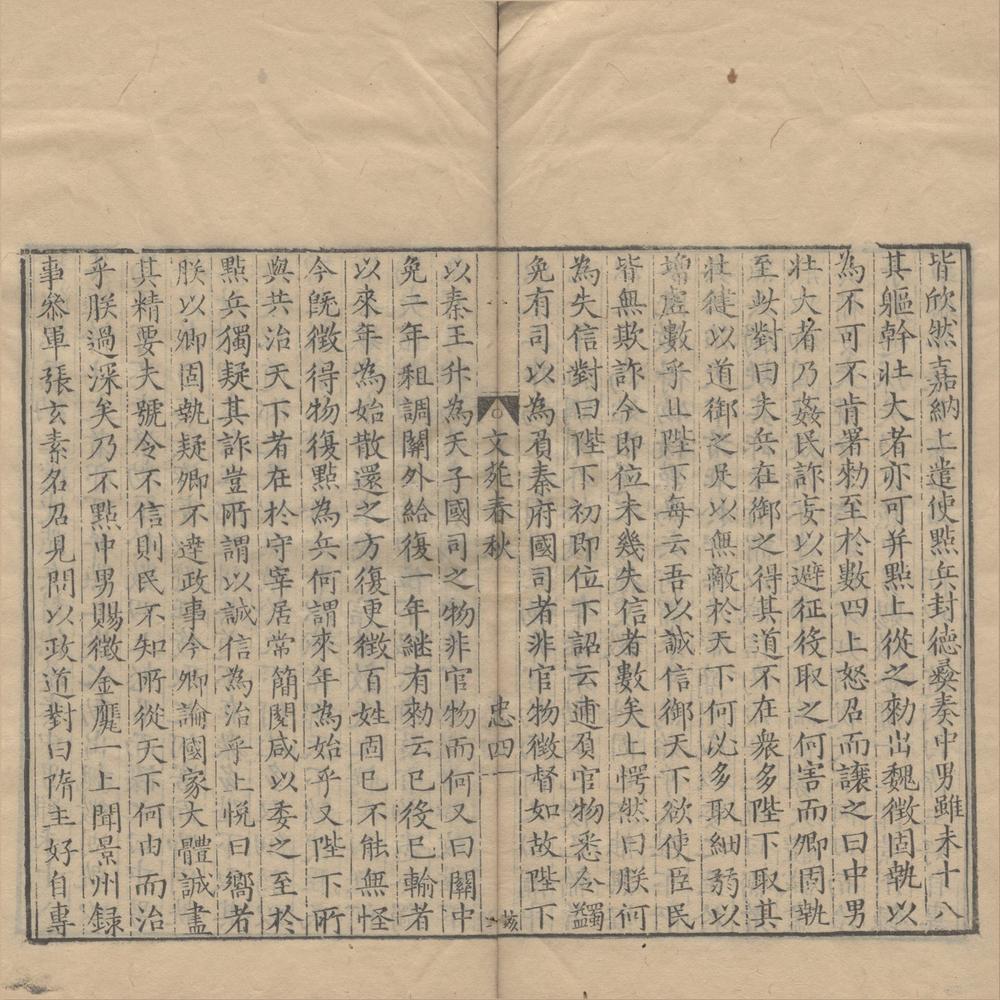 皆欣然嘉納上遣使㸃兵封德彝奏中男雖未十八
其軀幹壯大者亦可并㸃上從之勑出魏徵固執以
為不可不肯署勑至於數四上怒召而讓之曰中男
壯大者乃姦民詐妄以避征役取之何害而卿固執
至此對曰夫兵在御之得其道不在衆多陛下取其
壯健以道御之足以無敵於天下何必多取細弱以
增虛數乎且陛下每云吾以誠信御天下欲使臣民
皆無欺詐今即位未幾失信者數矣上愕然曰朕何
為失信對曰陛下初即位下詔云逋負官物悉令蠲
免有司以為負秦府國司者非官物徵督如故陛下
文苑春秋
忠四
以秦王升為天子國司之物非官物而何又曰關中
免二年租調關外給復一年継有勑云已役已輸者
以來年為始散還之方復更徵百姓固已不能無怪
今旣徵得物復㸃為兵何謂來年為始乎又陛下所
與共治天下者在於守宰居常簡閱咸以委之至於
㸃兵獨疑其詐豈所謂以誠信為治乎上悅曰嚮者
朕以卿固執疑卿不達政事今卿論國家大體誠盡
其精要夫號令不信則民不知所從天下何由而治
乎朕過深矣乃不㸃中男賜徵金甕一上聞景州録
事參軍張玄素名召見問以政道對曰隋主好自專